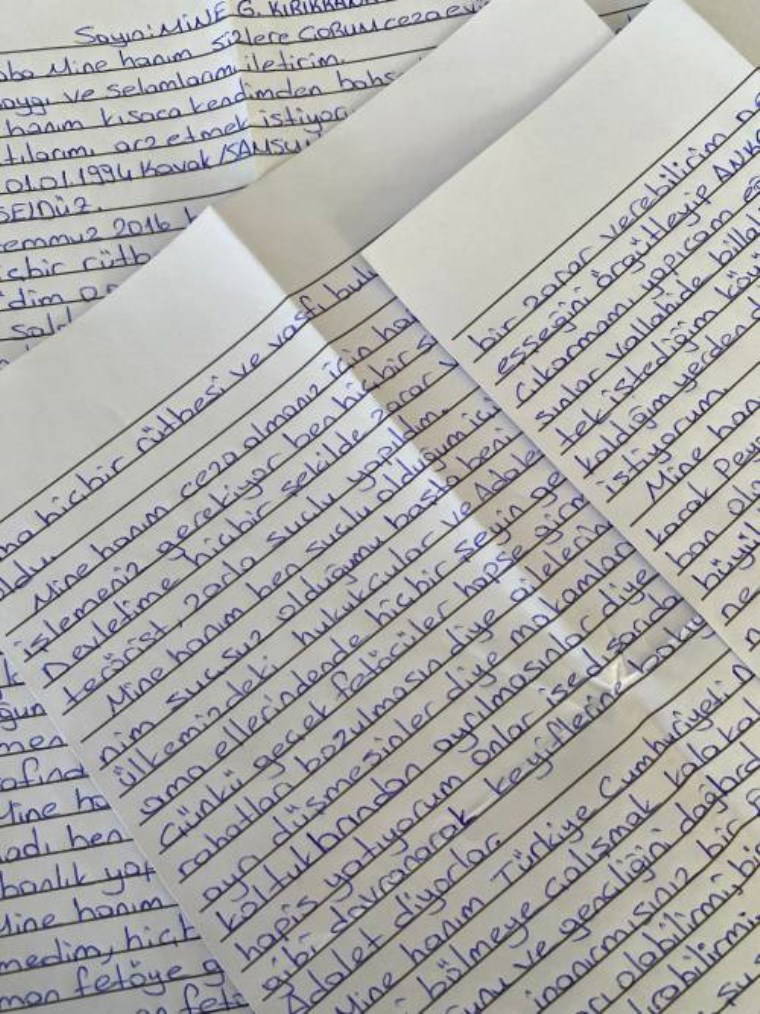 Sayın: MİNE G. KIRIKKANA
aba Mine hanım sizlere ÇORUM cezaevi
aygı ve selamlarımı iletirim.
hanım kısaca kendimden bahs
tılarımı arz etmek istiyor
01.01.1994 Kavak/SAMSU
temmuz 2016
içbir rütb
dim
Sald
hiçbir rütbesi ve vasfı bulu
oldu.
Mine hanım ceza almanız için ha
işlemeniz gerekiyor ben hiçbir s
Devletime hiçbir şekilde zarar v
terörist, zorla suçlu yapıldım.
Mine hanım ben suçlu olduğum içi
nim suçsuz olduğumu başta beni
ülkemizdeki hukukçular ve Adale
ama ellerindende hiçbir şeyin ge
Çünkü gerçek fetöcüler hapse girm
rahatları bozulmasın diye ailelerin
ayrı düşmesinler diye makamlar
koltuklarından ayrılmasınlar diye
hapis yatıyorum onlar ised sarıda
gibi davranarak keyiflerine bakıy
Adalet diyorlar.
Mine hanım Türkiye Cumhuriyetin
bölmeye çalışmak kalakal
unu ve gençliğini dağbard
inanırmısınız bir
olabilirmi, bir
bir zarar verebilirim
eşşeğini örgütleyip ANKA
çıkarmamı yapıcam
sınlar vallahide billahi
tek istediğim köy
kaldığım yerden d
istiyorum.
Mine han
karak
ban
büyül
ne
ğun
men
afınd
Mine ha
adı ben
banlık yap
Mine hanım
medim, hiçb
man fetöye g
fetö